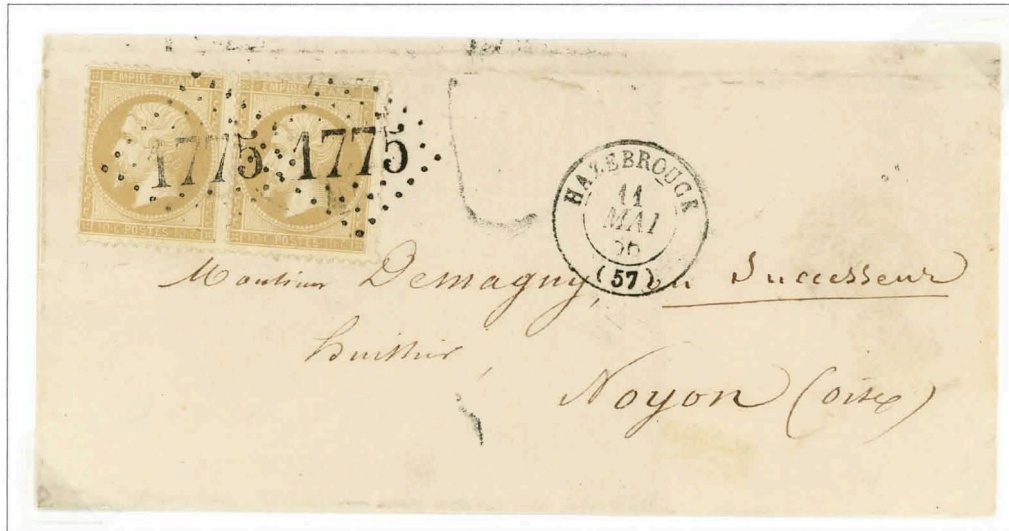 EMPIRE FRANC EMPIRE FRANC
1775 1775
10 C POSTES 10 C 10 C POSTES 10 C
HAZEBROUCK
11
MAI
66
(57)
Monsieur Demagny, ou Successeur
huissier,
Noyon (oise)